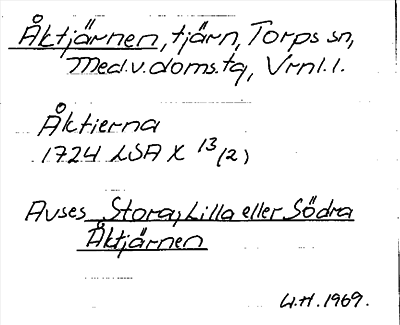 Åktjärnen, tjärn, Torps sn,
Med.v.doms.tg, Vrnl.l.
Åktierna
1724 LSA X 13/(2)
Avses Stora, Lilla eller Södra
Åktjärnen
W.H. 1969.